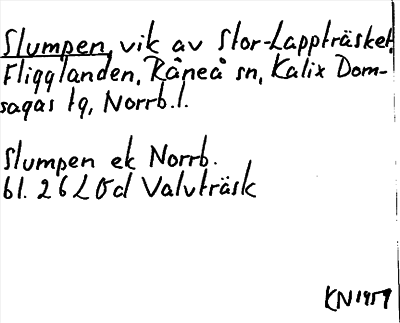 Slumpen, vik av Stor-Lappträsket,
Fligglanden, Råneå sn, Kalix Dom-
sagas tg, Norrb.l.
Slumpen ek Norrb.
bl. 26 L 0d Valvträsk
KN 1959